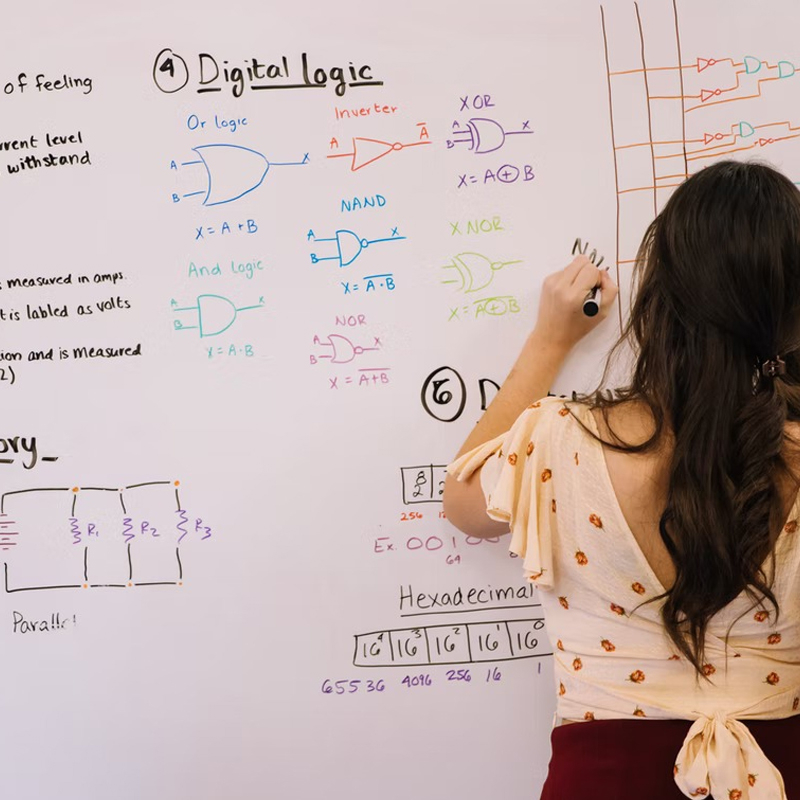 of feeling
rrent level
withstand
s measured in amps.
t is labled as volts
ion and is measured
2)
ory
R1
R2
R3
Parallel
④ Digital logic
Or logic
A
X
B
X = A + B
And logic
A
X
B
X = A·B
Inverter
A
A̅
NAND
A
X
B
X = A̅·̅B̅
NOR
A
X
B
X = A̅+̅B̅
XOR
A
X
B
X = A⊕B
X NOR
X = A̅⊕̅B̅
NA
⑤ D
8 2
256
Ex. 001
64
Hexadecimal
16⁴ 16³ 16² 16¹ 16⁰
65536 4096 256 16 1